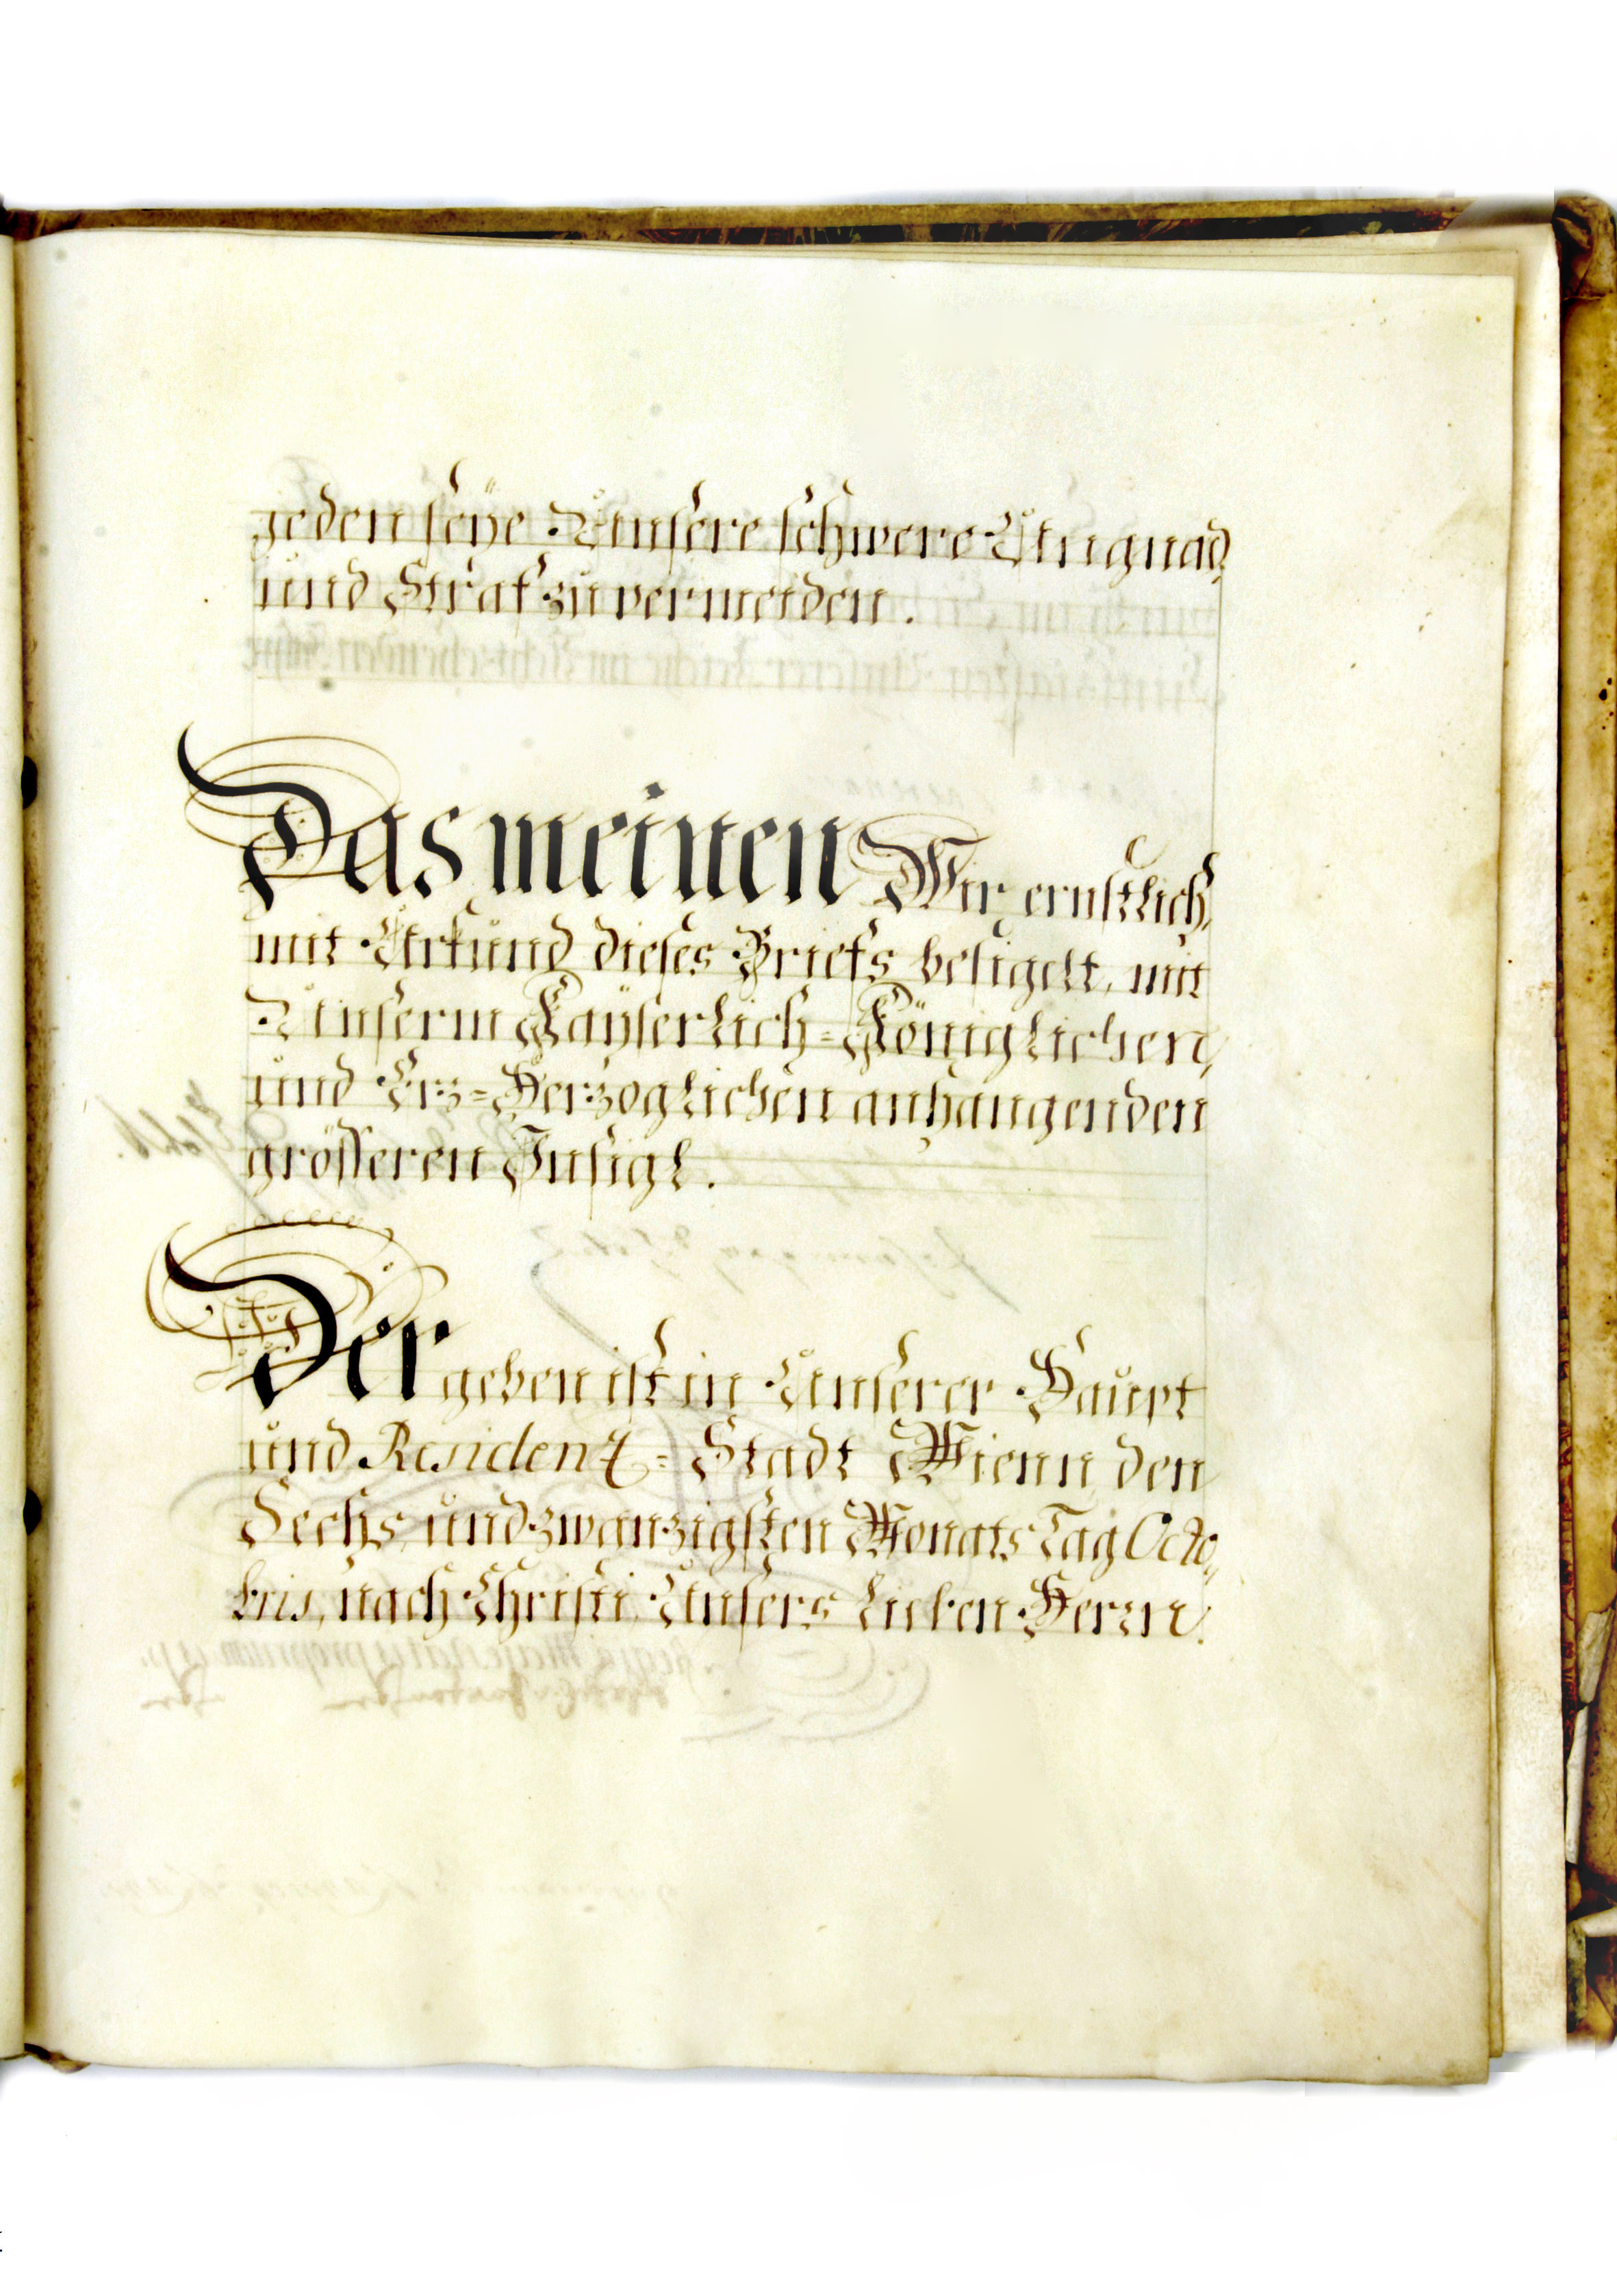 jeden seÿe Unsere schwere Ungnad,
und Straf zu vermeiden.
Das meinen Wir ernstlich,
mit Urkund dieses Briefs besigelt, mit
Unserm Kaÿserlich-Königlichen,
und Erz-Herzoglichen anhangenden
grösseren Insigl.
Der geben ist in Unserer Haupt
und Residenz-Stadt Wienn den
Sechs und zwanzigsten Monats Tag Octo,,
bris, nach Christi Unsers lieben Herrn